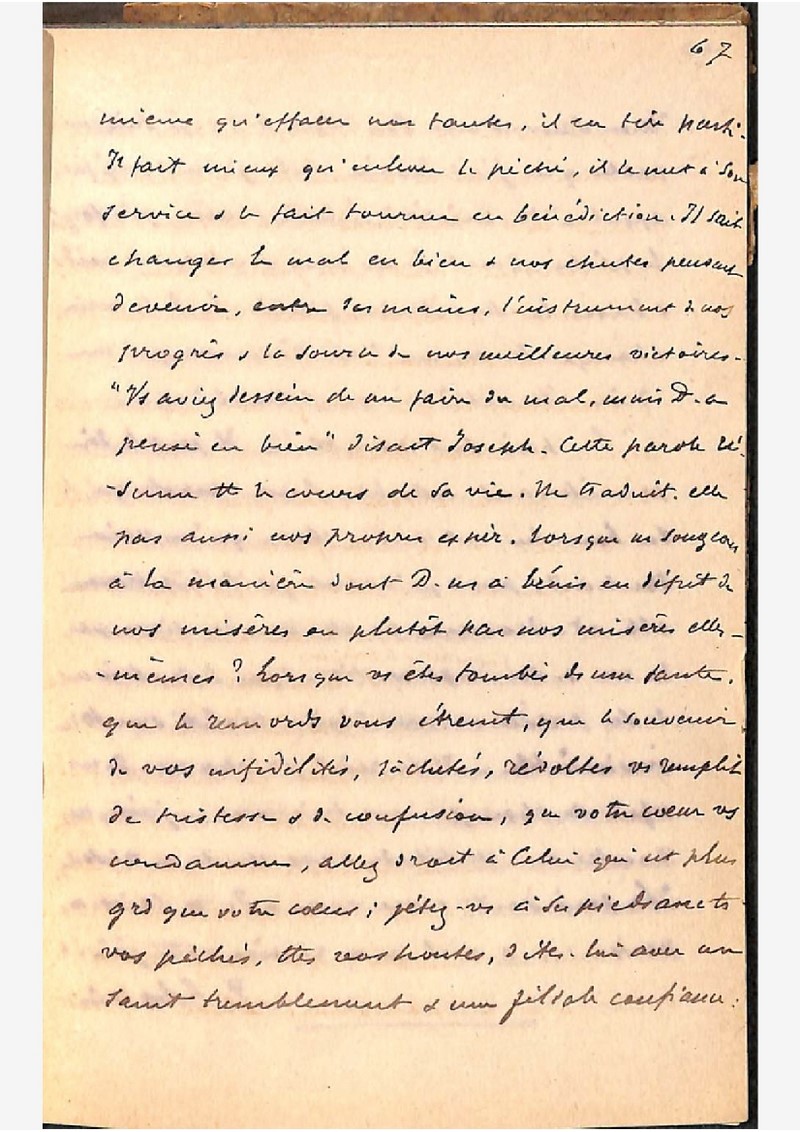 67
mieux qu'effacer nos fautes, il en tire parti.
Il fait mieux qu'enlever le péché, il le met à son
service & le fait tourner en bénédiction. Il sait
changer le mal en bien & nos chutes peuvent
devenir, entre ses mains, l'instrument de nos
progrès & la source de nos meilleures victoires.
"Vs aviez dessein de me faire du mal, mais D. a
pensé en bien" disait Joseph. Cette parole ré-
-sume tt le cours de sa vie. Ne traduit-elle
pas aussi nos propres expér. lorsque ns songeons
à la manière dont D. ns a bénis en dépit de
nos misères ou plutôt par nos misères elles-
-mêmes ? Lorsque vs êtes tombés ds une faute,
que le remords vous étreint, que le souvenir
de vos infidélités, lâchetés, révoltes vs remplit
de tristesse & de confusion, que votre coeur vs
condamne, allez droit à Celui qui est plus
grd que votre coeur ; jetez-vs à ses pieds avec ts
vos péchés, ttes vos hontes, dites-lui avec un
saint tremblement & une filiale confiance :